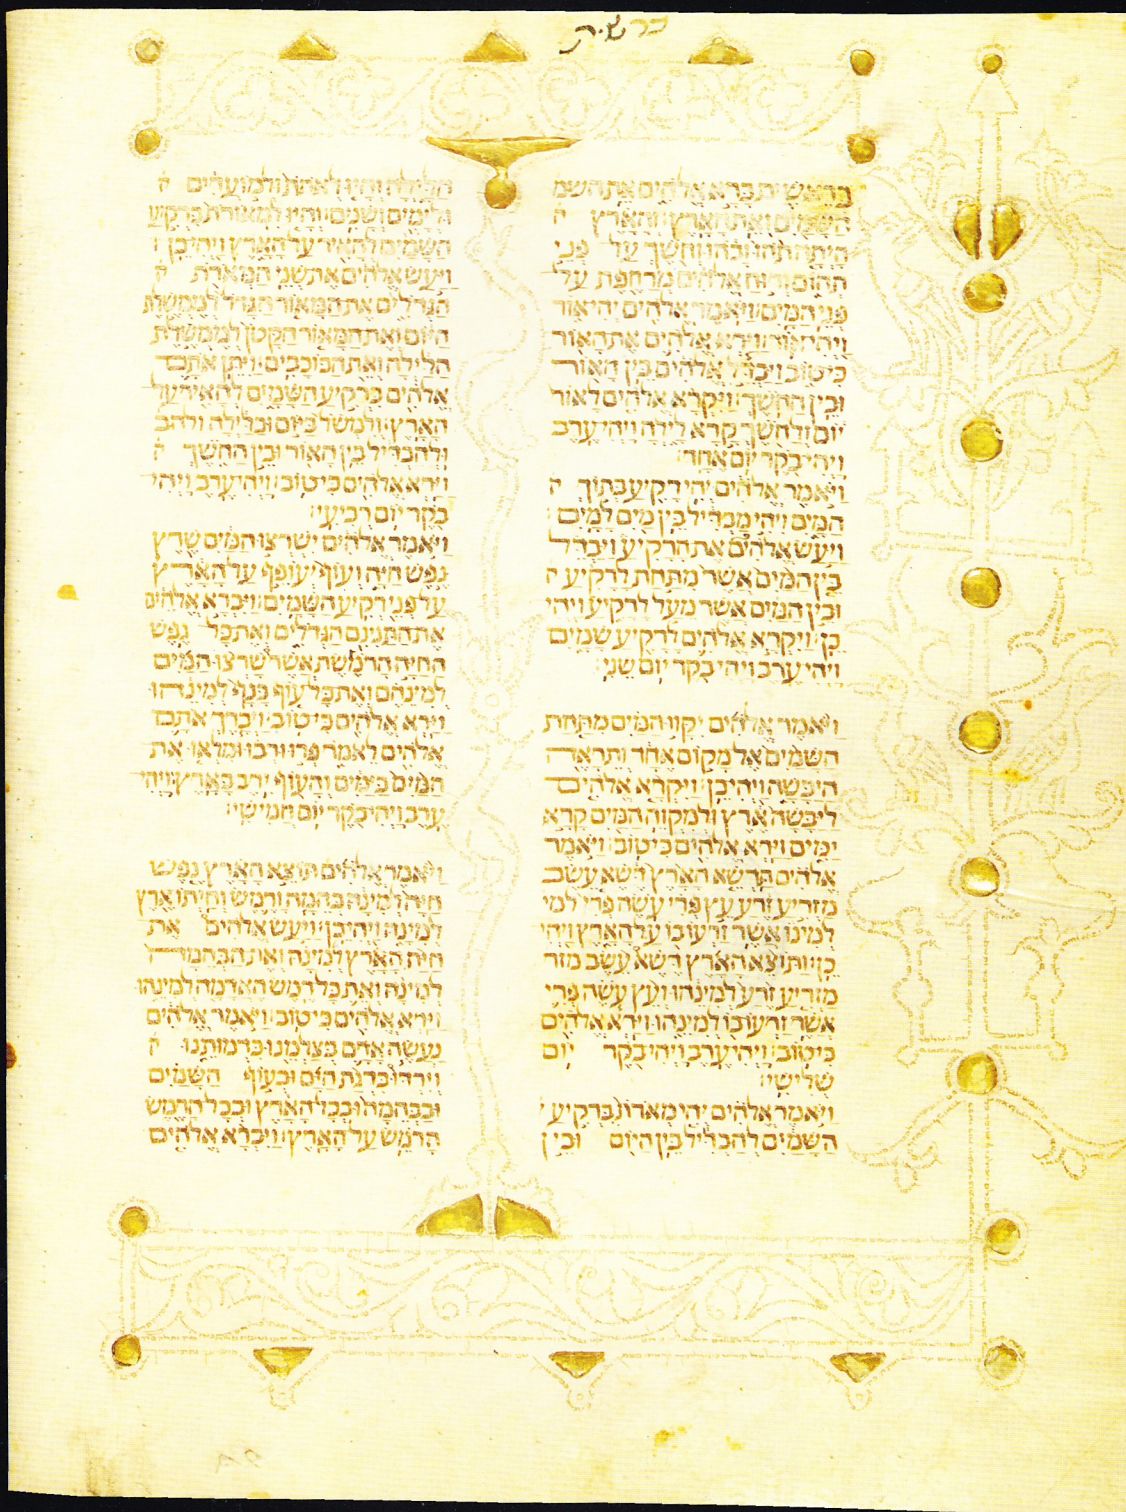 ברשית
בראשית ברא אלהים את השמ
השמים ואת הארץ והארץ ה
היתה תהו ובהו וחשך על פני
תהום ורוח אלהים מרחפת על
פני המים ויאמר אלהים יהי אור
ויהי אור וירא אלהים את האור
כי טוב ויבדל אלהים בין האור
ובין החשך ויקרא אלהים לאור
יום ולחשך קרא לילה ויהי ערב
ויהי בקר יום אחד׃
ויאמר אלהים יהי רקיע בתוך ה
המים ויהי מבדיל בין מים למים
ויעש אלהים את הרקיע ויבדל
בין המים אשר מתחת לרקיע ה
ובין המים אשר מעל לרקיע ויהי
כן ויקרא אלהים לרקיע שמים
ויהי ערב ויהי בקר יום שני׃
ויאמר אלהים יקוו המים מתחת
השמים אל מקום אחד ותראה
היבשה ויהי כן ויקרא אלהים
ליבשה ארץ ולמקוה המים קרא
ימים וירא אלהים כי טוב ויאמר
אלהים תדשא הארץ דשא עשב
מזריע זרע עץ פרי עשה פרי למי
למינו אשר זרעו בו על הארץ ויהי
כן ותוצא הארץ דשא עשב מזר
מזריע זרע למינהו ועץ עשה פרי
אשר זרעו בו למינהו וירא אלהים
כי טוב ויהי ערב ויהי בקר יום
שלישי׃
ויאמר אלהים יהי מארות ברקיע
השמים להבדיל בין היום ובין
הלילה והיו לאתת ולמועדים ה
ולימים ושנים והיו למאורת ברקיע
השמים להאיר על הארץ ויהי כן
ויעש אלהים את שני המארת ה
הגדלים את המאור הגדל לממשלת
היום ואת המאור הקטן לממשלת
הלילה ואת הכוכבים ויתן אתם
אלהים ברקיע השמים להאיר על
הארץ ולמשל ביום ובלילה ולהב
ולהבדיל בין האור ובין החשך ה
וירא אלהים כי טוב ויהי ערב ויהי
בקר יום רביעי׃
ויאמר אלהים ישרצו המים שרץ
נפש חיה ועוף יעופף על הארץ
על פני רקיע השמים ויברא אלהים
את התנינם הגדלים ואת כל נפש
החיה הרמשת אשר שרצו המים
למינהם ואת כל עוף כנף למינהו
וירא אלהים כי טוב ויברך אתם
אלהים לאמר פרו ורבו ומלאו את
המים בימים והעוף ירב בארץ ויהי
ערב ויהי בקר יום חמישי׃
ויאמר אלהים תוצא הארץ נפש
חיה למינה בהמה ורמש וחיתו ארץ
למינה ויהי כן ויעש אלהים את
חית הארץ למינה ואת הבהמה
למינה ואת כל רמש האדמה למינהו
וירא אלהים כי טוב ויאמר אלהים
נעשה אדם בצלמנו כדמותנו ה
וירדו בדגת הים ובעוף השמים
ובבהמה ובכל הארץ ובכל הרמש
הרמש על הארץ ויברא אלהים